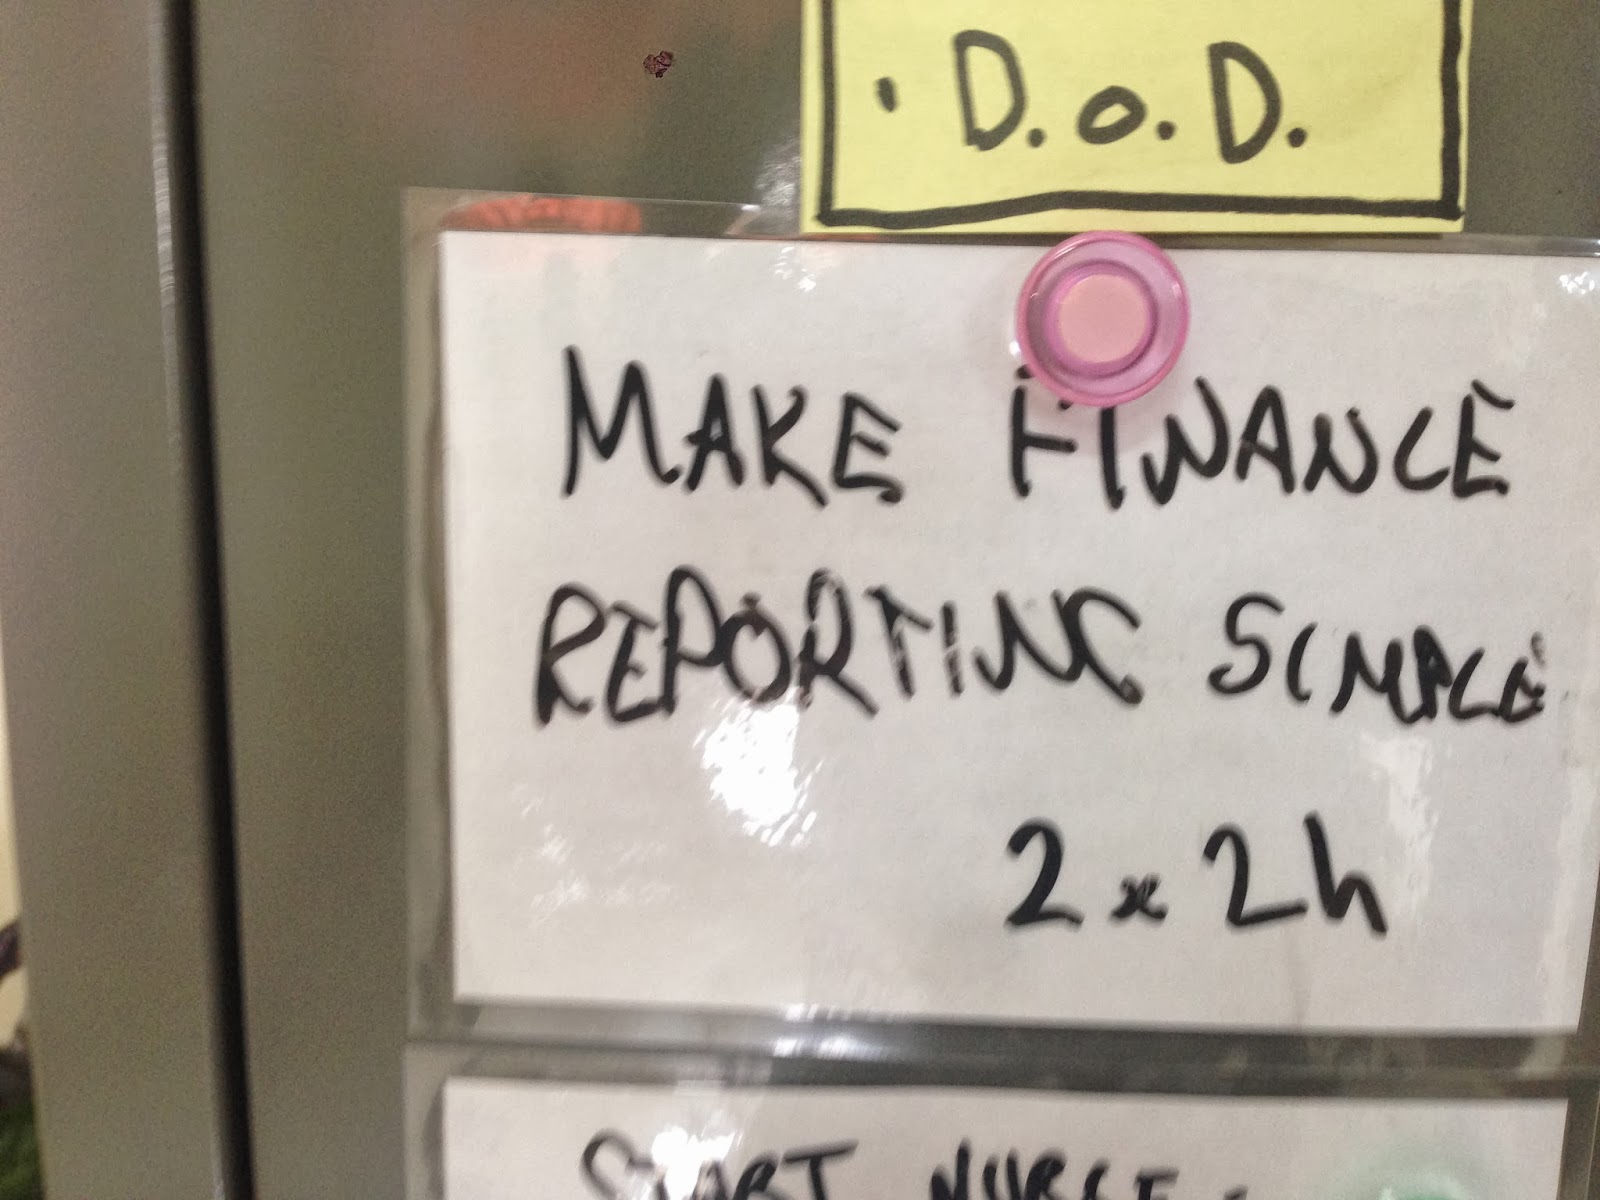 · D.o.D.
MAKE FINANCE
REPORTING SIMPLE
2 x 2h
START NURSE